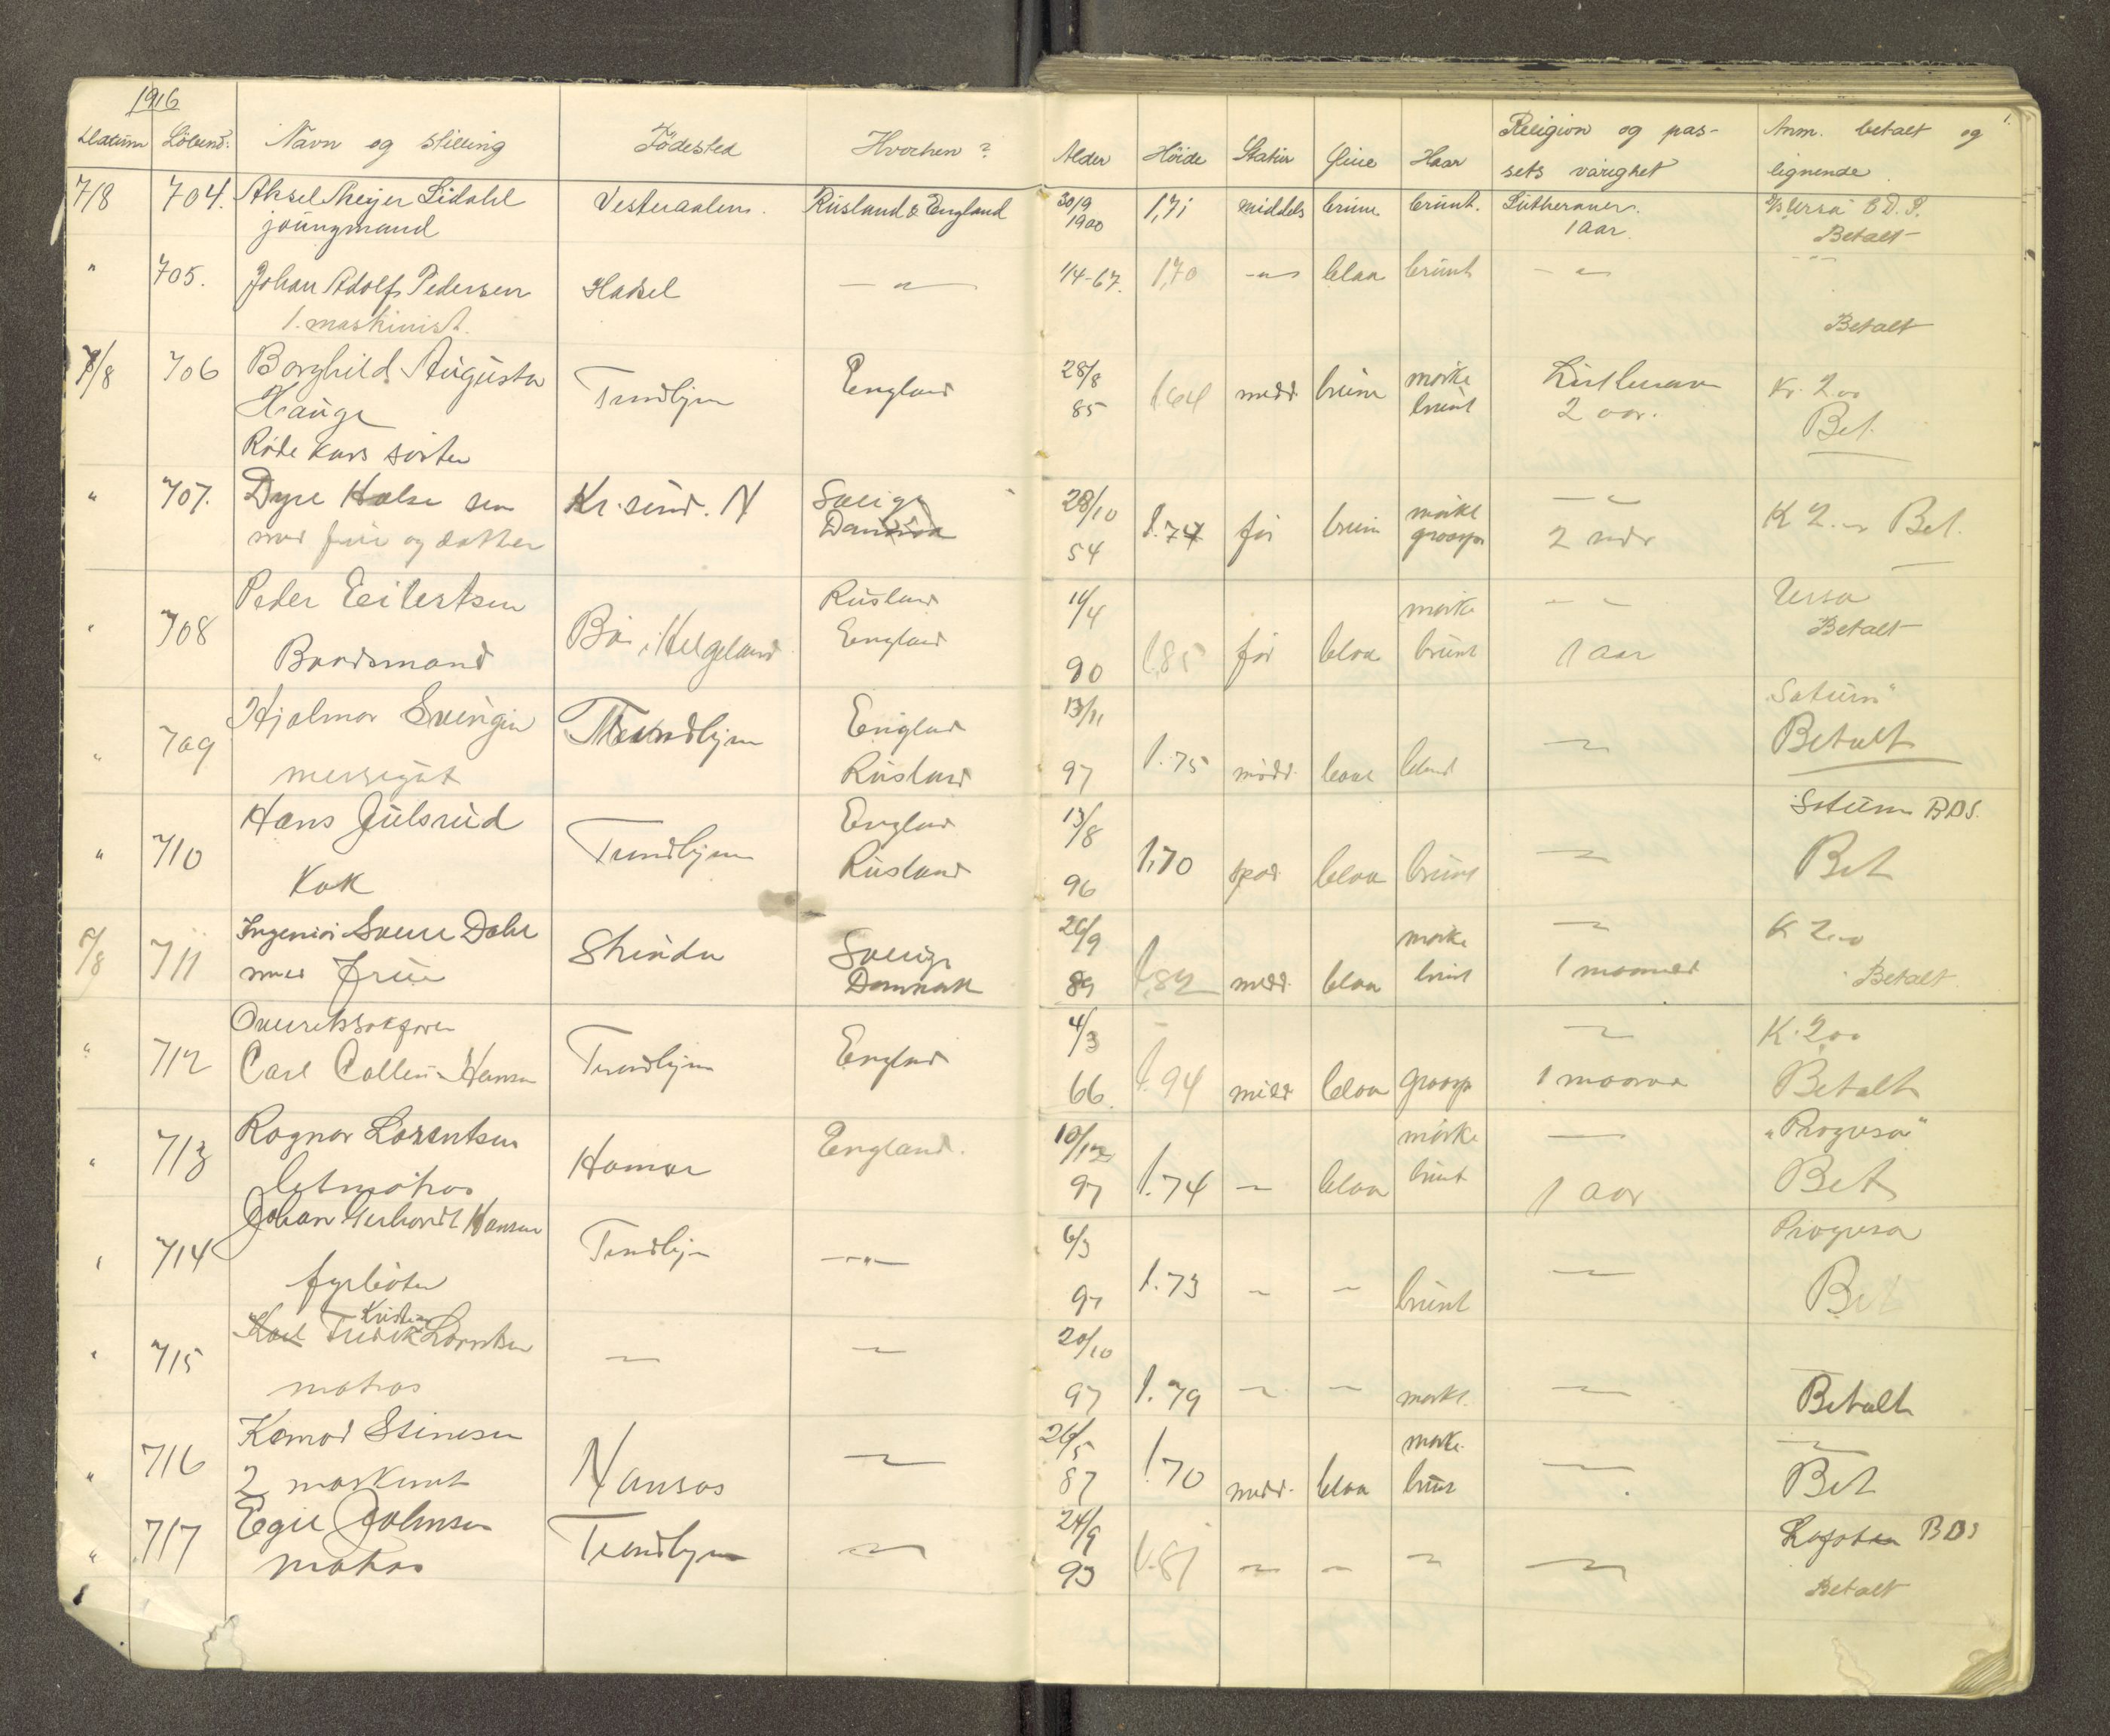 1916
Datum Löbend: Navn og stilling Födested Hvorhen? Alder Höide Statur Öine Haar Religion og pas- Anm. betalt og 1.
sets varighet lignende
7/8 704. Aksel Meyer Lidahl Vesteraalen. Rusland & England 30/9 1,71 middels brune brunt. Lutheraner. "Ursa" B.D.S.
joungmand 1900 1 aar. Betalt
" 705. Johan Adolf Pedersen Hadsel — " — 1/4-67. 1,70 - " - blaa brunt - " - - " -
1. maskinist. Betalt
8/8 706 Borghild Augusta Trondhjem England 28/8 1.64 midd. brune mørke Lutheraner Kr. 2.00
Hauge 85 brunt 2 aar. Bet.
Røde Kors søster
" 707. Dyre Halse sen Kr. sund. N Sverige 28/10 1.74 før brun mørke — " —
med frue og datter Danmark 54 graasp 2 mdr K 2.00 Bet.
" 708 Peder Eilertsen Bö i Helgeland Rusland 14/4 1.85 før blaa mørke - " - Ursa
Baadsmand England 90 brunt 1 aar Betalt
" 709 Hjalmar Trondhjem England 13/11 1.75 midd. blaa blond — " — "Saturn"
messegut Rusland 97 Betalt
" 710 Hans Julsrud Trondhjem England 13/8 1,70 spæd blaa brunt — " — Saturn BDS.
Kok Rusland 96 Bet
9/8 711 Ingeniør Sverre Dahl Strinden Sverige 26/9 1.82 midd. blaa mørke — " — K 2.00
med Frue Danmark 89 brunt 1 maaned Betalt
" 712 Overretssakfører Trondhjem England 4/3 1.94 midd blaa graasp — " — K. 2.00
Carl Collin Hansen 66. 1 maaned Betalt
" 713 Ragnar Lorentsen Hamar England. 10/12 1.74 — blaa mørke — "Progress"
letmatros 97 brunt 1 aar Bet
" 714 Johan Gerhardt Hansen Trondhjem — " — 6/3 1.73 — — brunt — Progress
fyrbøter 97 Bet
" 715 Karl Fredrik Kristian Lorentsen — — 20/10 1.79 — — mørkt. —
matros 97 Betalt
" 716 Konrad Stinesen Namsos — 26/5 1.70 midd. blaa mørke — —
2 maskinist 87 brunt Bet
" 717 Egil Johnsen Trondhjem — 24/9 1.81 — — — — Lofoten BDS
matros 93 Betalt